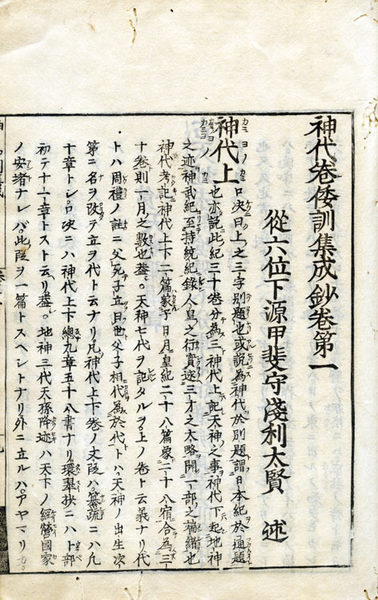 神代巻倭訓集成鈔巻第一
從六位下源甲斐守淺利太賢 述
神代上 口决曰上之三字別題也或説為神代於別題謂日本紀於通題
也亦説此紀三十巻分為三神代上記天神之事神代下起地神
之迹神武紀至持統紀録人皇之行實逐三才之太略開一部之
神代考記神代上下二篇象于日月皇紀二十八篇象二十八宿合為三
十巻則一月之数也
天神七代ヲ記タルヲ上ノ巻ト云義ナリ代
トハ周禮ノ註ニ父死子立曰世父子相代為於代トハ天神ノ出生次
第ニ名ヲ改テ立ヲ代ト云ナリ凡神代上下巻ノ文段ハ纂疏ニハ凡
十章トシ口决ニハ神代上下總九章五十八書ナリ環翠抄ニハト部
初テ十一章トスト云リ
地神三代天孫降迹ハ天下ノ經營國家
ノ安堵ナレバ此段ヲ一篇トスヘントナリ外ニ立ルハアヤマリ